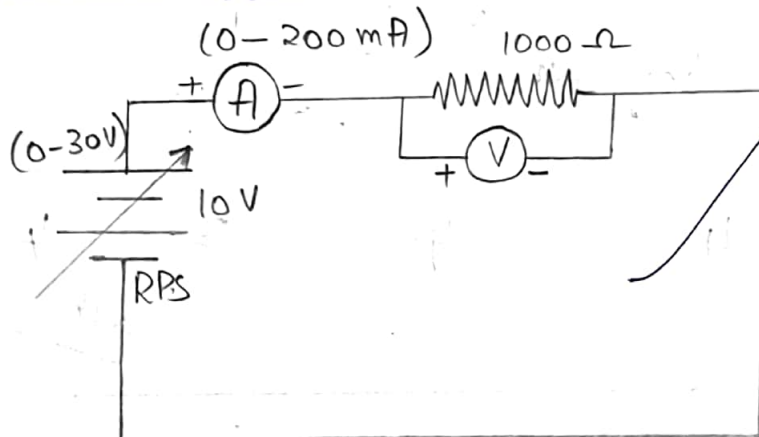 (0-200mA)
1000 Ω
+ A -
(0-30V)
+ V -
10V
RPS